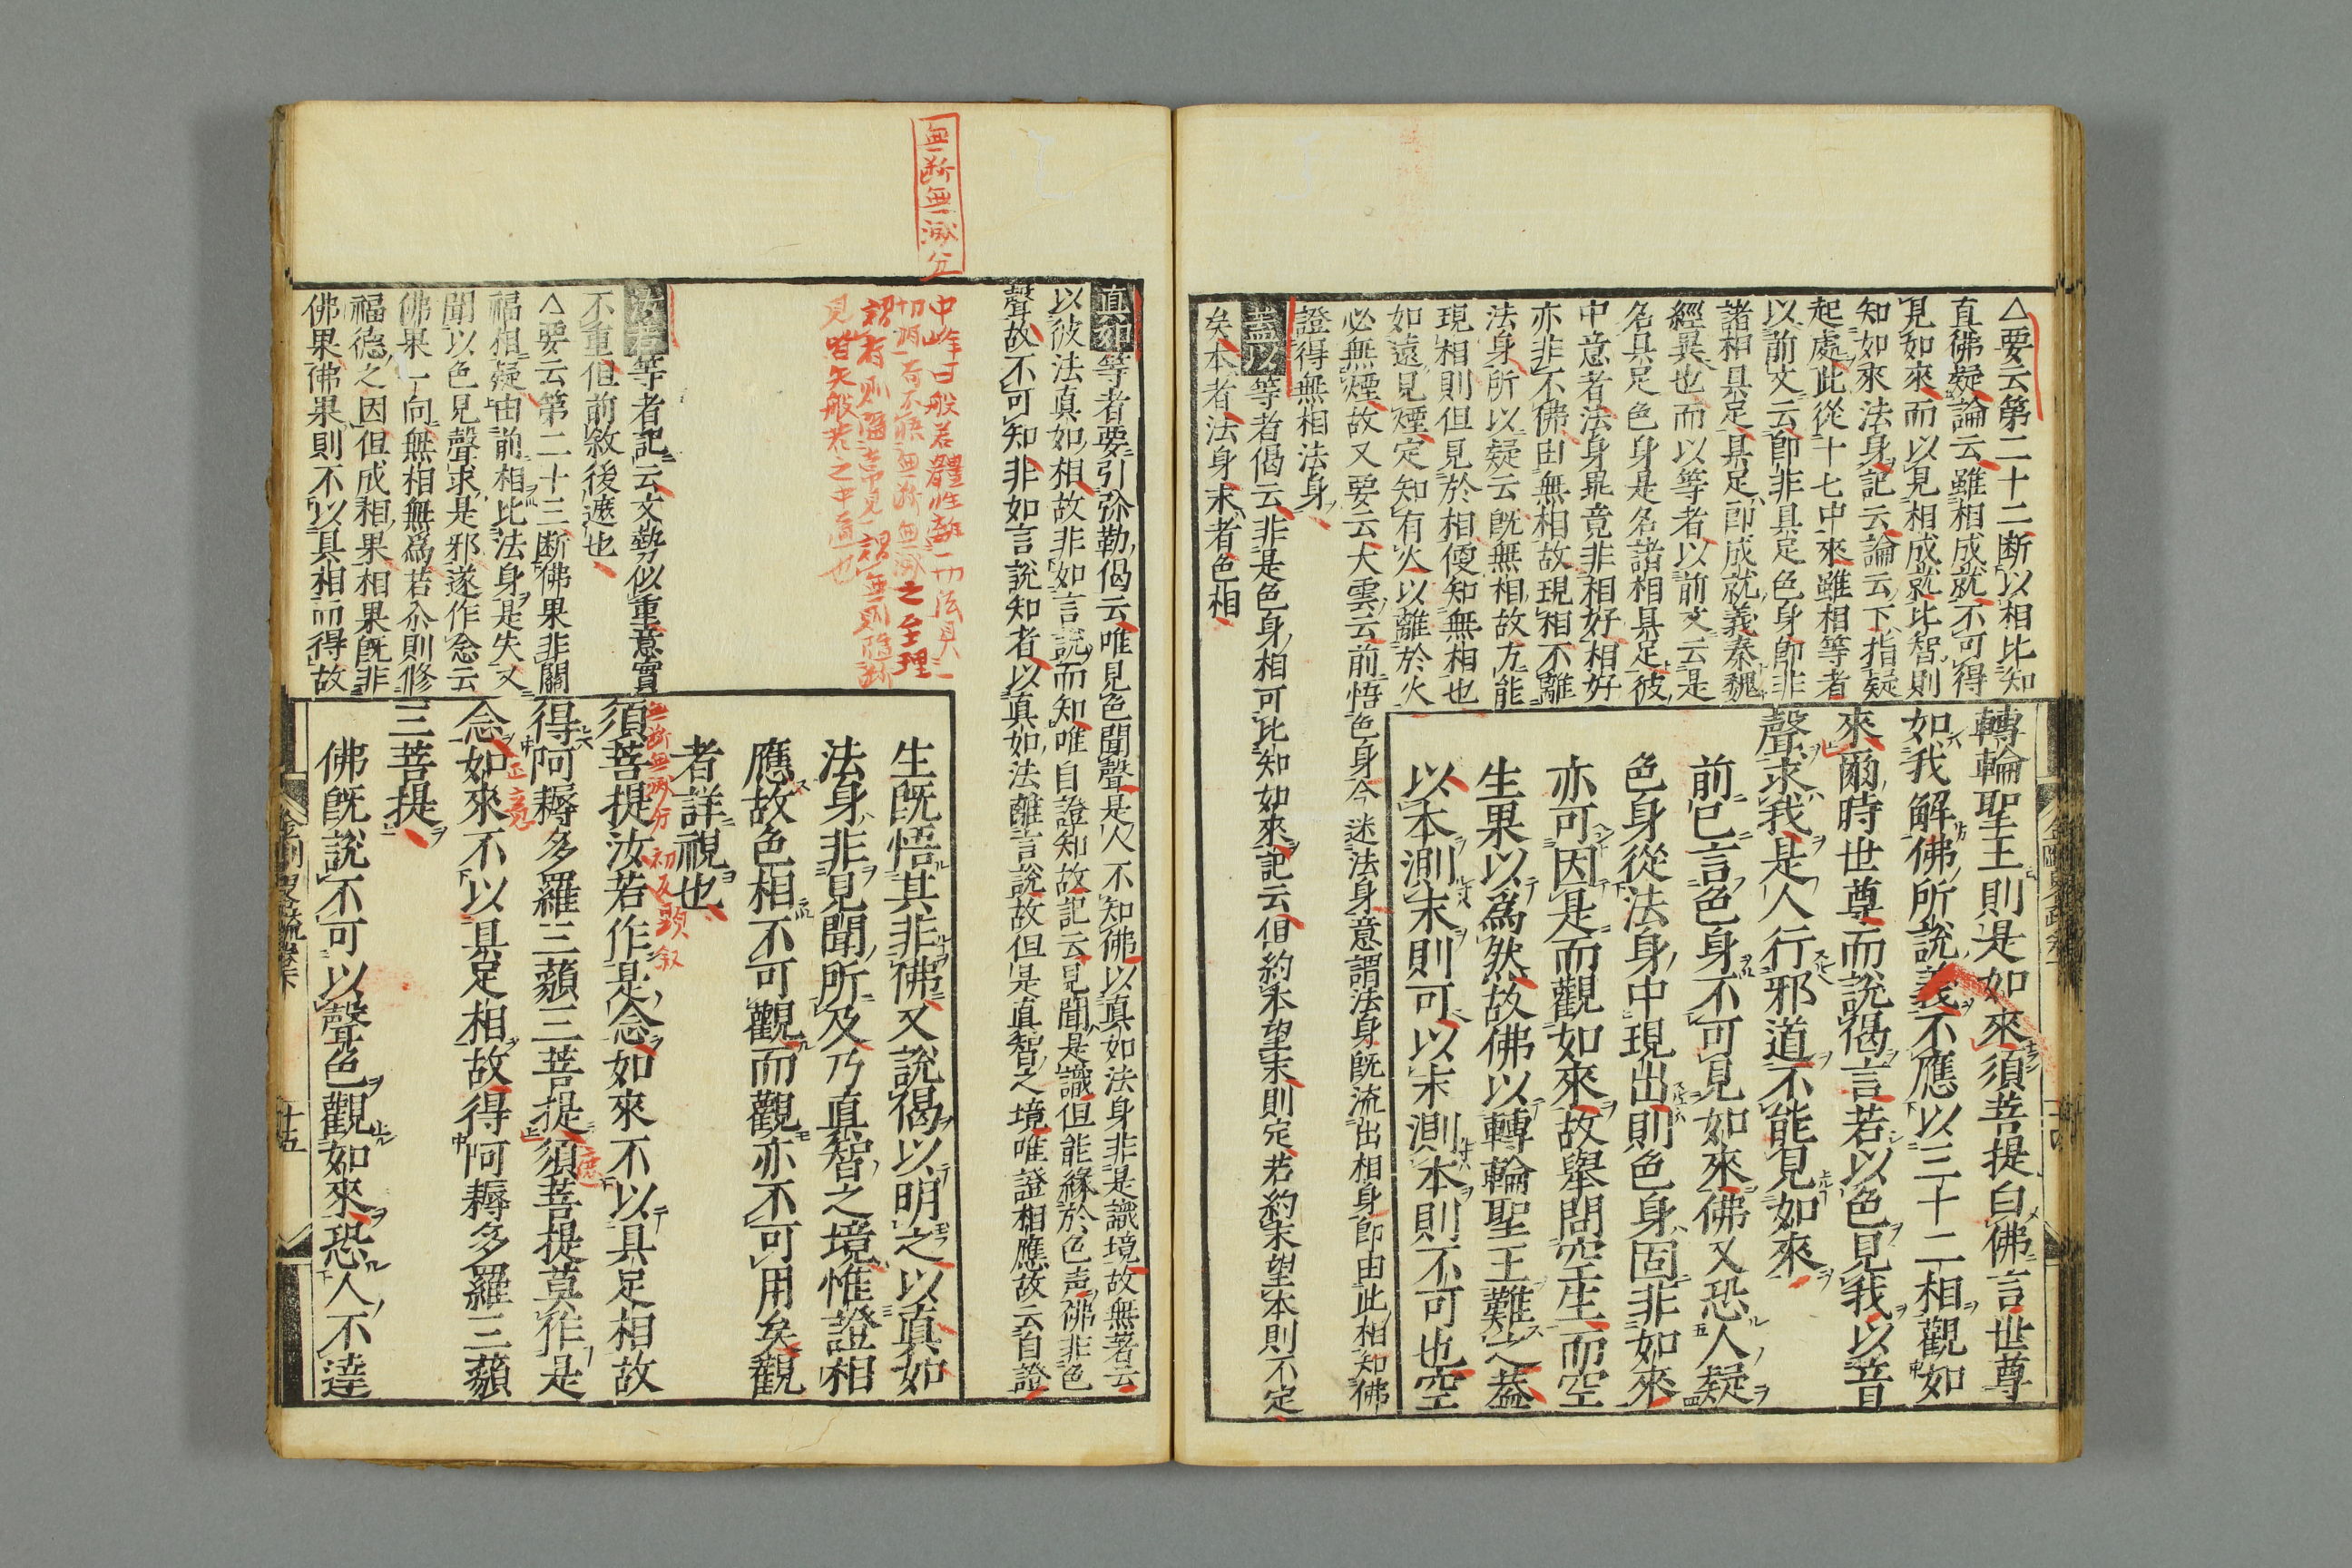 △要云第二十二断以相比知
真佛疑論云雖相成就不可得
見如來而以見相成就比智則
知如來法身記云論云下指疑
起處此從十七中來雖相等者
以前文云即非具足色身即非
諸相具足具足即成就義秦魏
經異也而以等者以前文云是
名具足色身是名諸相具足彼
中意者法身毘竟非相好相好
亦非不佛由無相故現相不離
法身所以疑云既無相故方能
現相則但見於相便知無相也
如遠見煙定知有火以離於火
必無煙故又要云大雲云前悟色身今迷法身意謂法身既流出相身即由此相知佛
證得無相法身
蓋以等者偈云非是色身相可比知如來記云但約本望末則定若約末望本則不定
矣本者法身末者色相
轉輪聖王則是如來須菩提白佛言世尊
如我解佛所說義不應以三十二相觀如
來爾時世尊而說偈言若以色見我以音
聲求我是人行邪道不能見如來
前已言色身不可見如來佛又恐人疑
色身從法身中現出則色身固非如來
亦可因是而觀如來故舉問空生而空
生果以為然故佛以轉輪聖王難之蓋
以本測末則可以末測本則不可也空
無断無滅分
真和等者要引弥勒偈云唯見色聞聲是人不知佛以真如法身非是識境故無著云
以彼法真如相故非如言說而知唯自證知故記云見聞是識但能緣於色声佛非色
聲故不可知非如言說知者以真如法離言說故但是真智之境唯證相應故云自證
之至理
汝若等者記云文勢似重意實
不重但前敘後遮也
△要云第二十三断佛果非關
福相疑由前相比法身是失又
聞以色見聲求是邪遂作念云
佛果一向無相無為若尒則修
福德之因但成相果相果既非
佛果佛果則不以具相而得故
生既悟其非佛又說偈以明之以真如
法身非見聞所及乃真智之境惟證相
應故色相不可觀而觀亦不可用矣觀
者詳視也
無断無滅分 初反顕叙
須菩提汝若作是念如來不以具足相故
得阿耨多羅三藐三菩提須菩提莫作是
念如來不以具足相故得阿耨多羅三藐
三菩提
佛既說不可以聲色觀如來恐人不達
十五